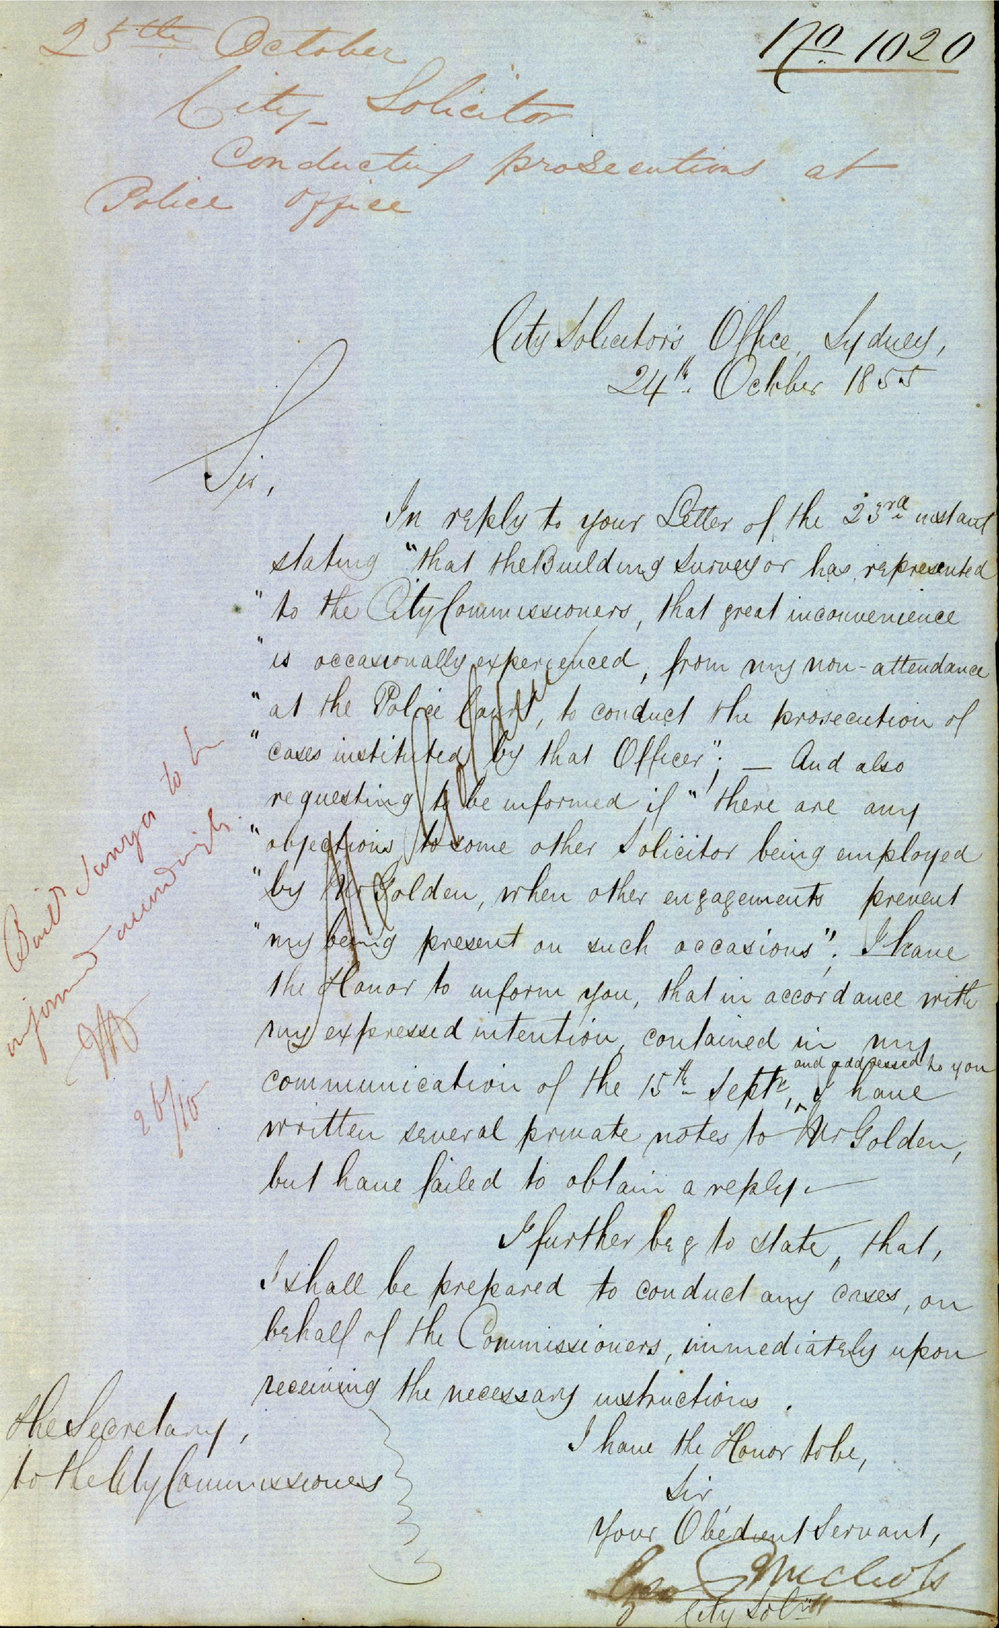 25th October
No. 1020
City Solicitor
Conducting prosecutions at
Police Office
City Solicitor's Office, Sydney,
24th. October 1855
Sir,
In reply to your Letter of the 23rd instant
stating "that the Building Surveyor has represented
"to the City Commissioners, that great inconvenience
"is occasionally experienced, from my non-attendance
"at the Police Court, to conduct the prosecution of
"cases instituted by that Officer"; — And also
requesting to be informed if "there are any
"objections to some other Solicitor being employed
"by Mr Golden, when other engagements prevent
"my being present on such occasions"; I have
the Honor to inform you, that in accordance with
my expressed intention, contained in my
communication of the 15th Septr, and addressed to you I have
written several private notes to Mr Golden,
but have failed to obtain a reply.—
I further beg to state, that,
I shall be prepared to conduct any cases, on
behalf of the Commissioners, immediately upon
receiving the necessary instructions.
I have the Honor to be,
Sir,
Your Obedient Servant,
Geo R Nichols
City Solr
the Secretary,
to the City Commissioners
Build Surveyor to be
informed accordingly.
26/10